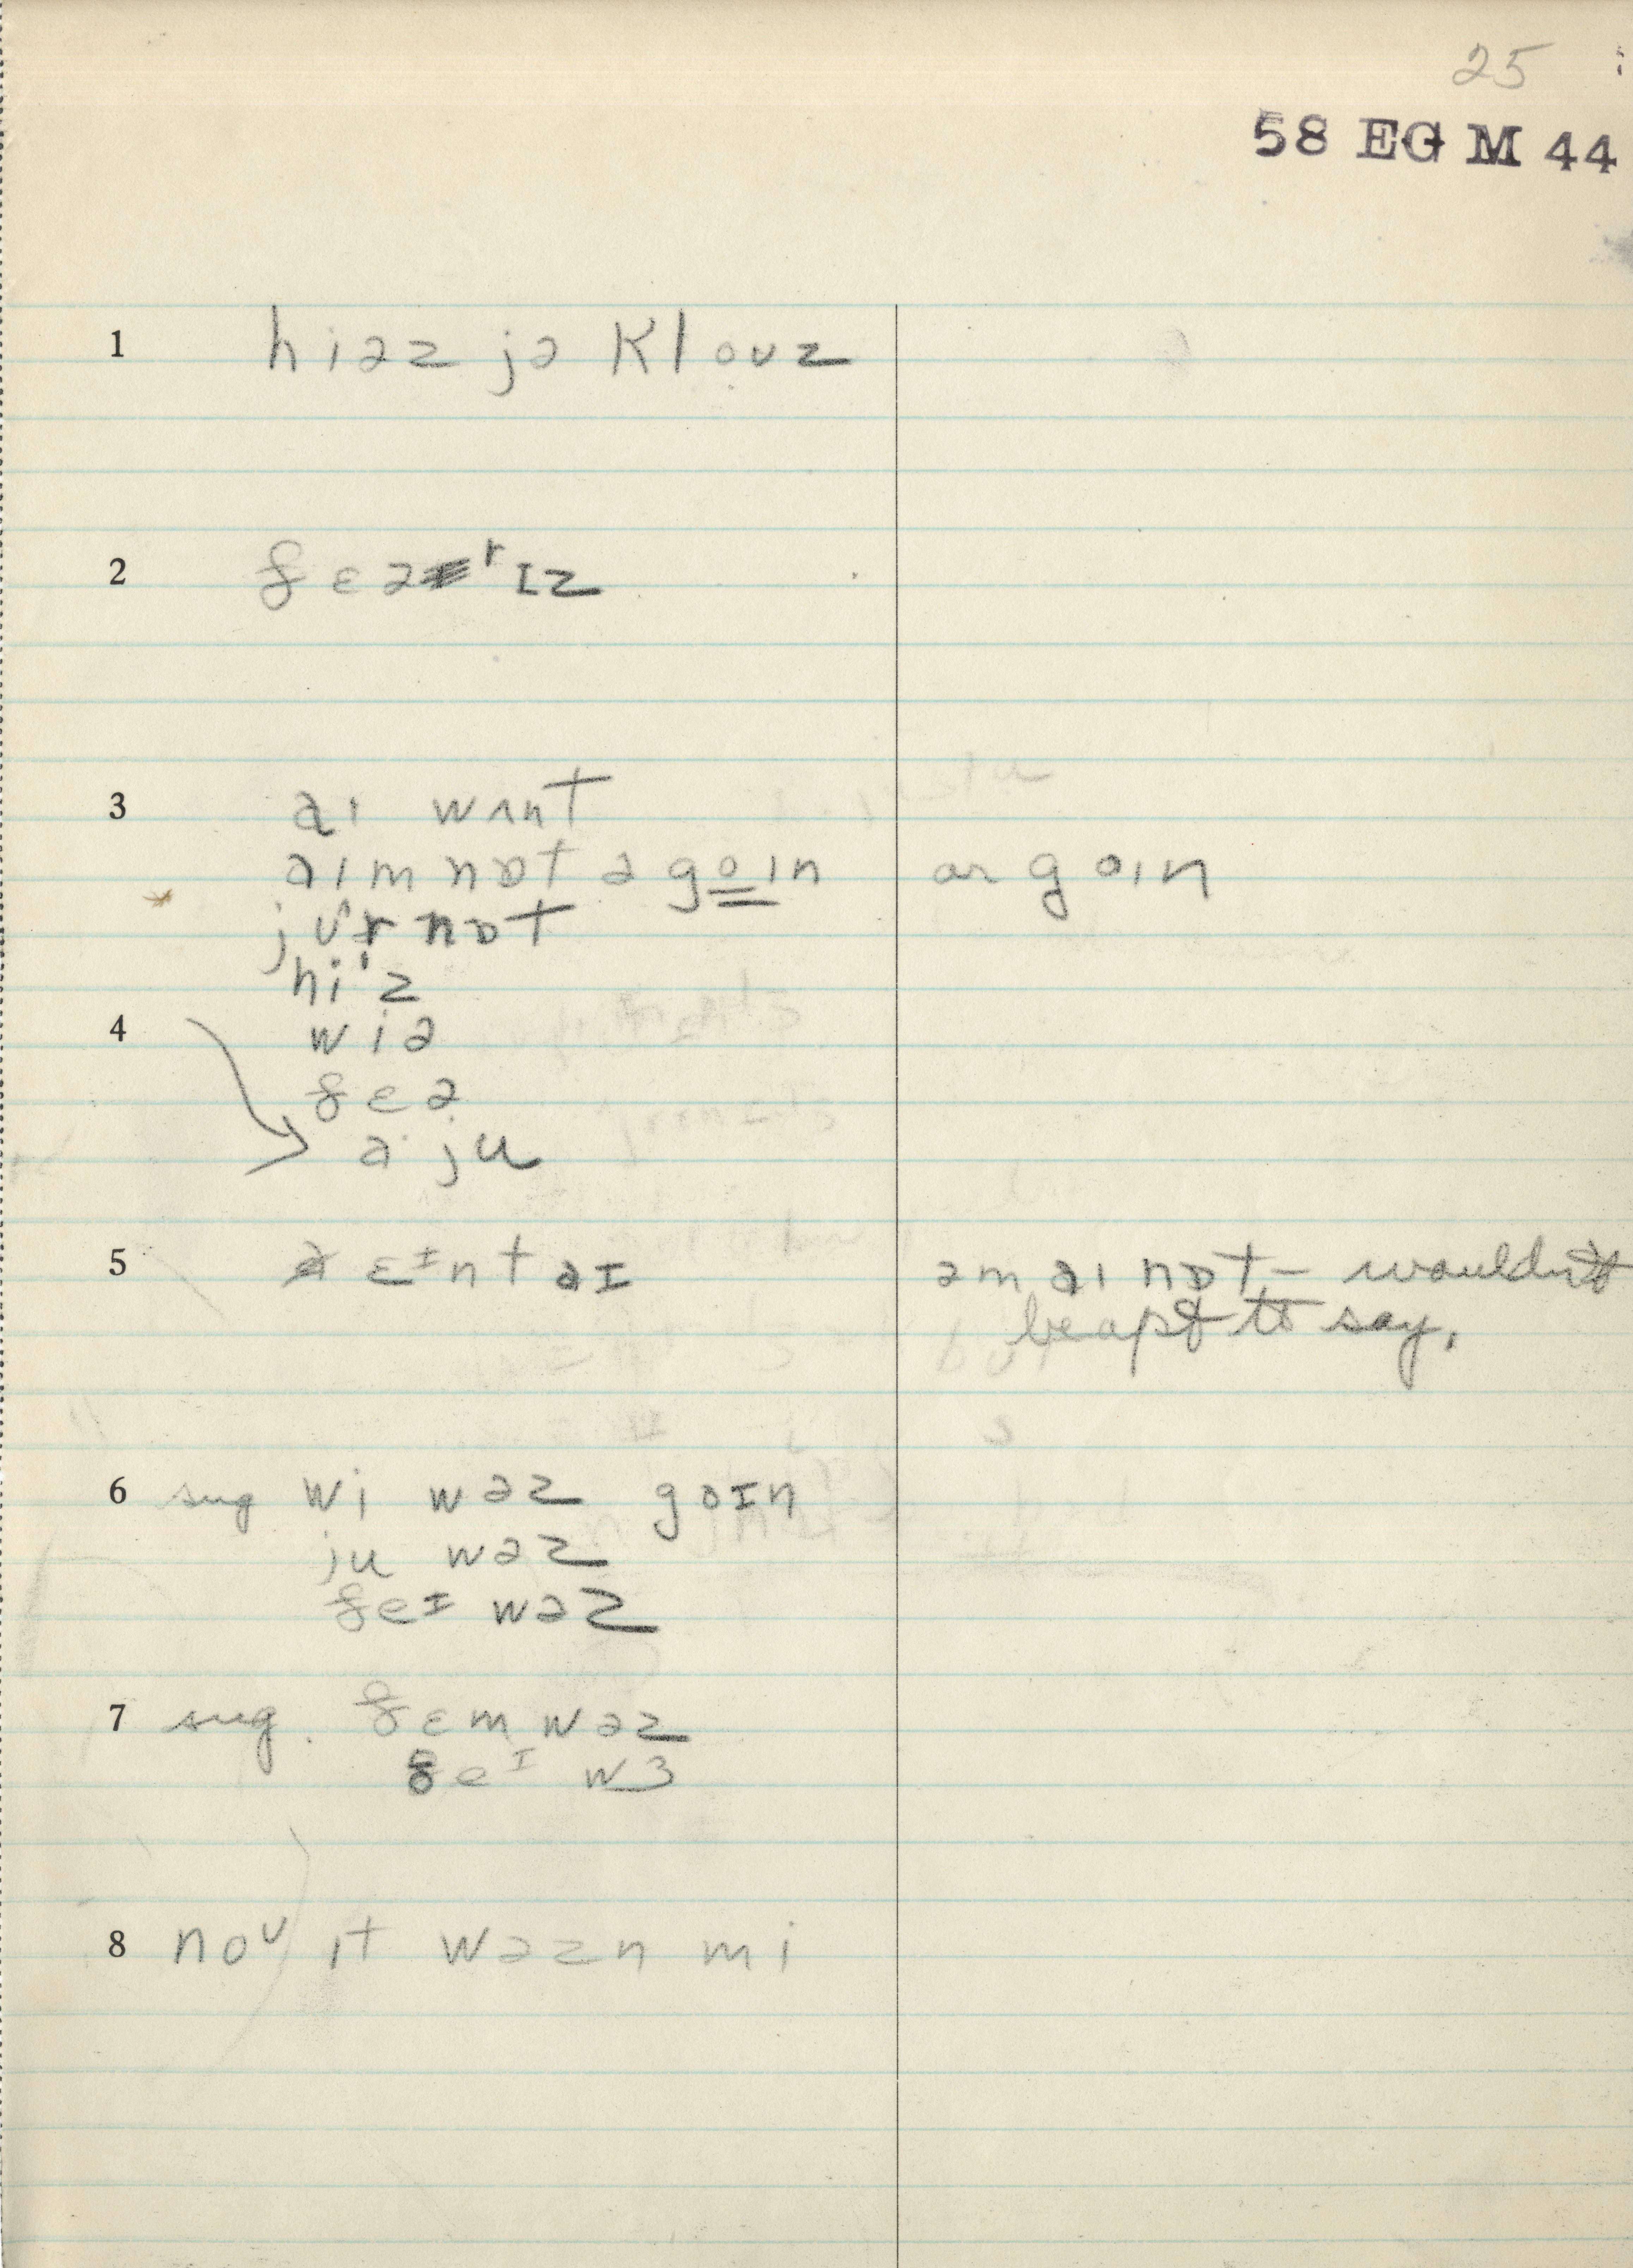 25
58 EG M 44
1 hiəz jə klouz
2 ðɛərɪz
3 aɪ wʌnt
aɪm nɒt ə goɪn or goɪn
jʊr nɒt
hi'z
4 wiə
ðɛə
ə ju
5 ɛɪnt aɪ əm aɪ nɒt – wouldn't
be apt to say.
6 sug wi wəz goɪn
ju wəz
ðeɪ wəz
7 sug. ðɛm wəz
ðeɪ wɜ
8 noʊ ɪt wəzn mi